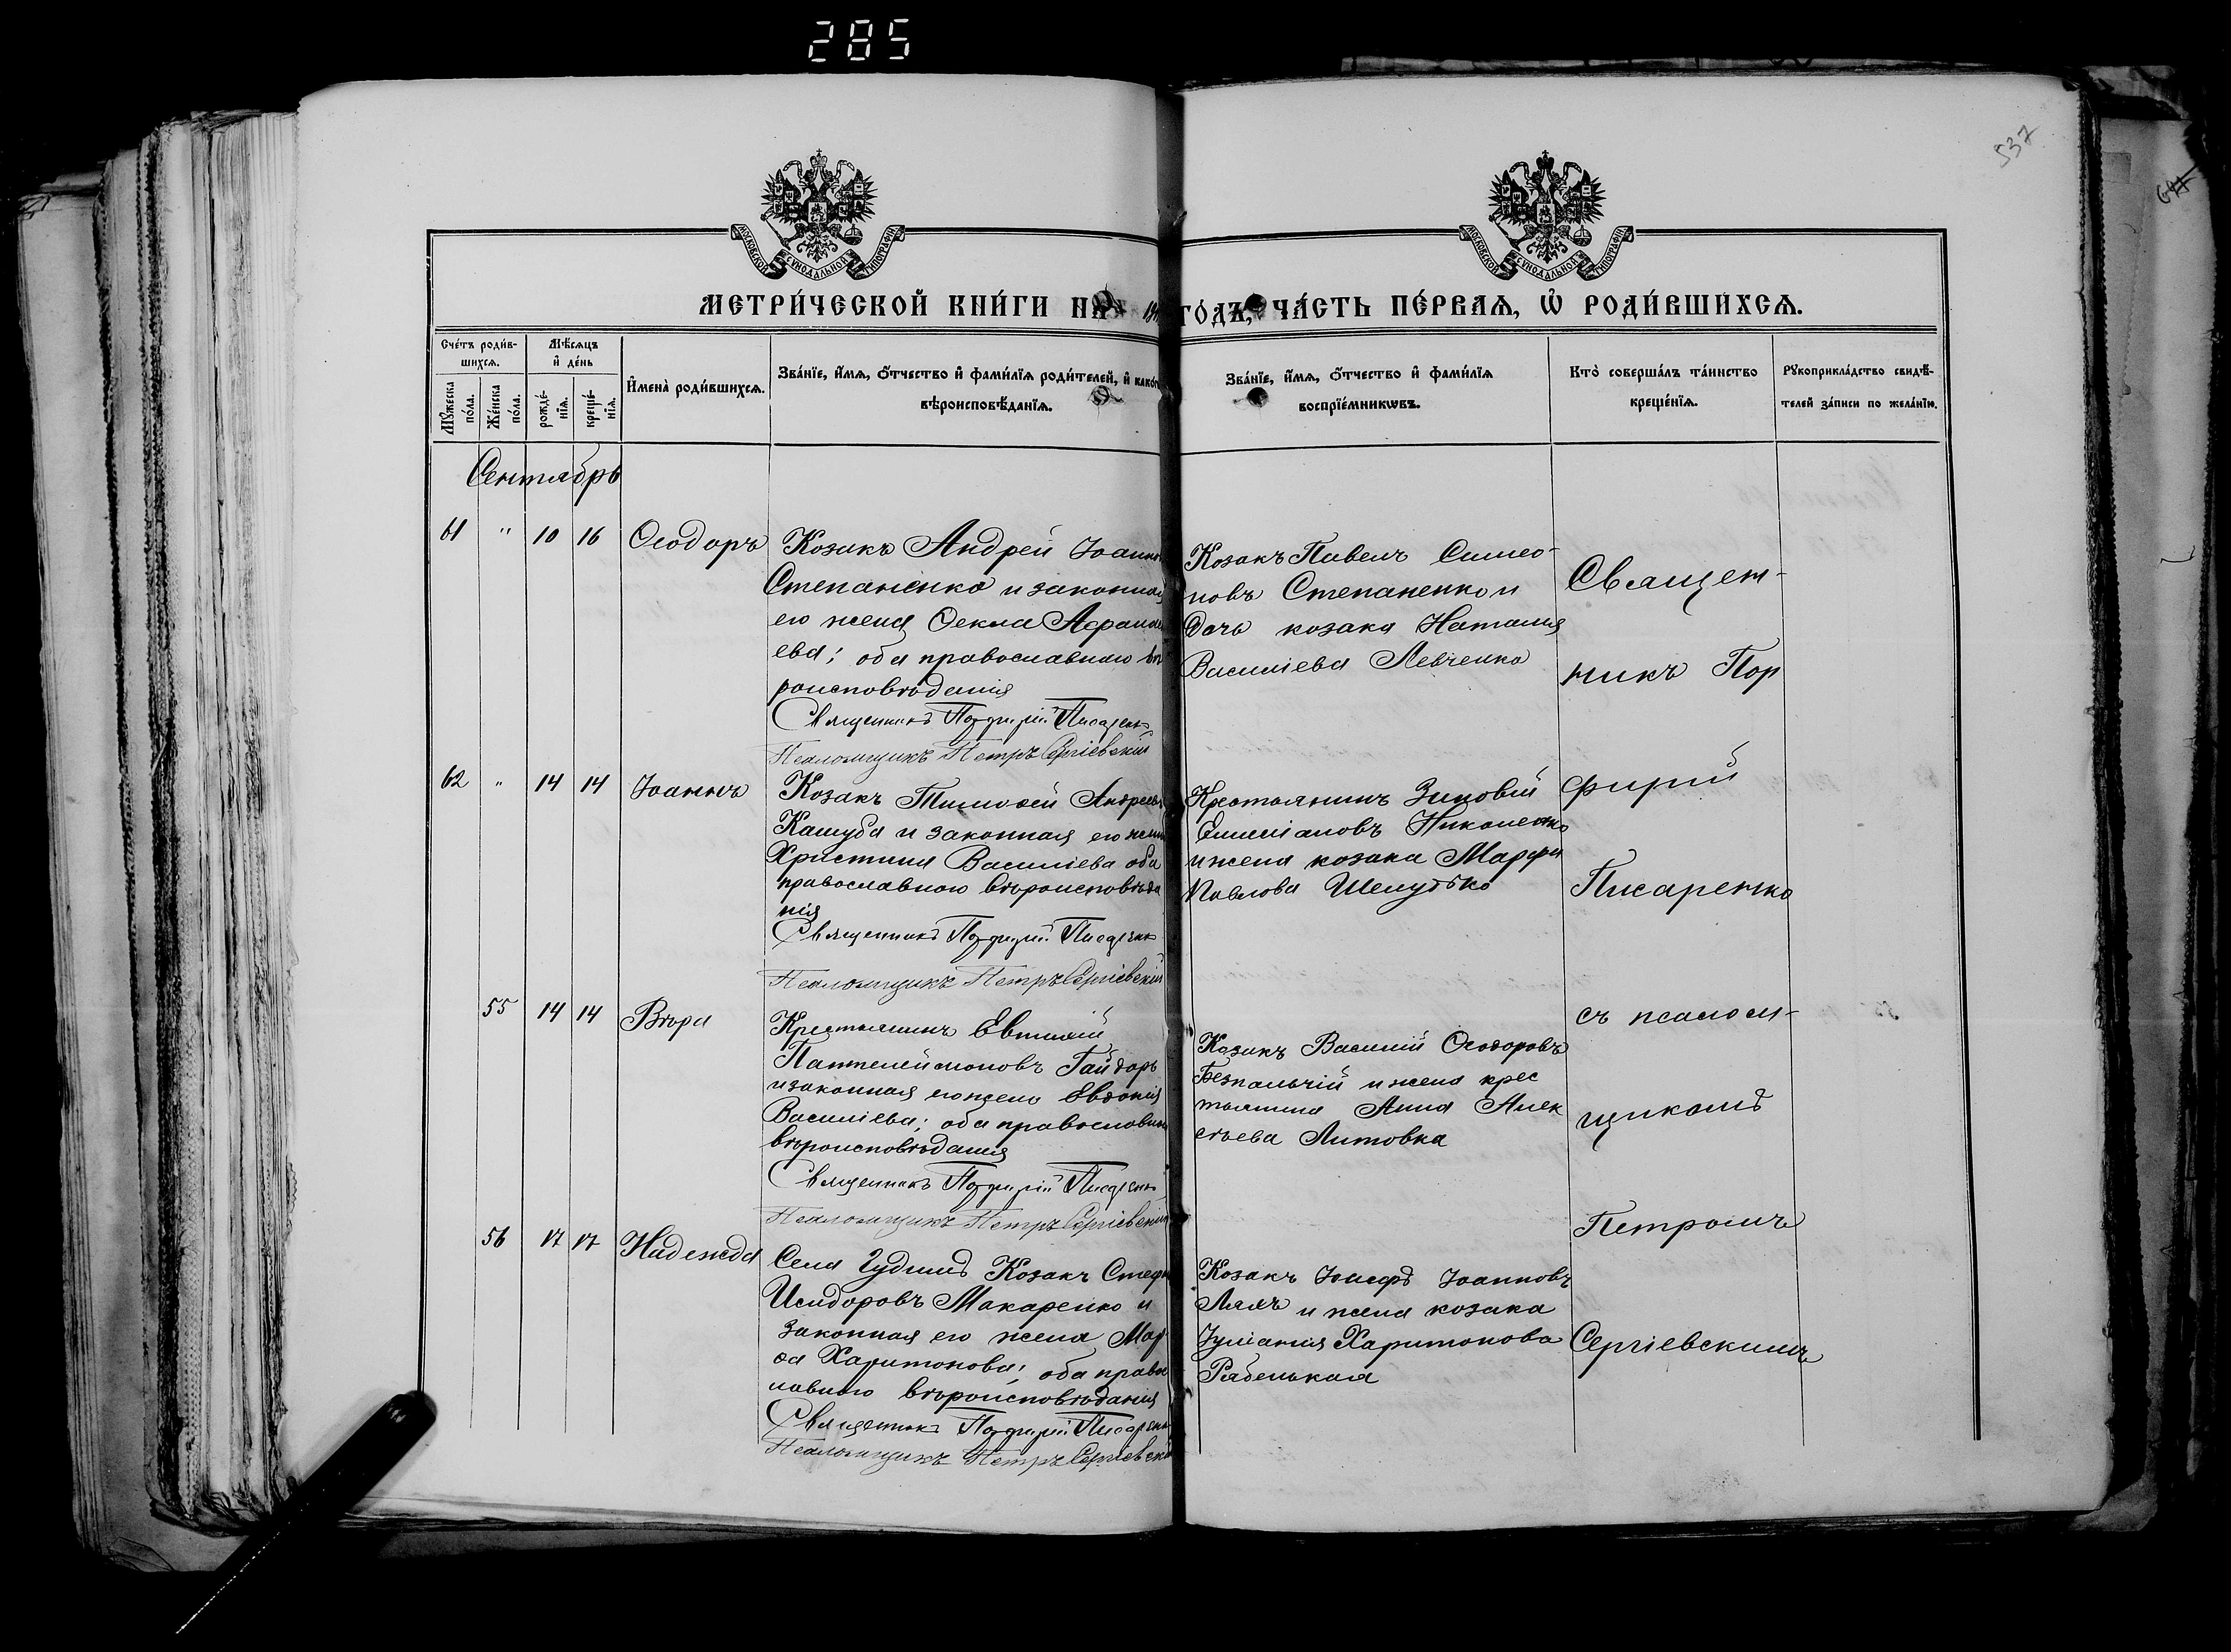 285
537
МОСКОВСКОЙ СУНОДАЛЬНОЙ ТИПОГРАФІИ
МОСКОВСКОЙ СУНОДАЛЬНОЙ ТИПОГРАФІИ
МЕТРИ́ЧЕСКОЙ КНИ́ГИ НА
ГО́ДЪ, ЧА́СТЬ ПЕ́РВАЯ, Ѡ РОДИ́ВШИХСЯ.
Сче́тъ роди́в-
шихся.
Мѣ́сяцъ
и҆ де́нь
Мꙋ́жеска
по́ла.
Же́нска
по́ла.
рожде́-
нїя.
креще́-
нїя.
И҆мена̀ роди́вшихся.
Зва́нїе, и҆́мя, ѻ҆́тчество и҆ фами́лїя роди́телей, и҆ како́г
вѣроисповѣ́данїя.
Зва́нїе, и҆́мя, ѻ҆́тчество и҆ фами́лїя
воспрїе́мникѡвъ.
Кто̀ соверша́лъ та́инство
креще́нїя.
Рꙋкоприкла́дство свидѣ́-
телей за́писи по жела́нїю.
Сентябрь
61 " 10 16 Ѳеодоръ
Козакъ Андрей Іоанно
Степаненко и законная
его жена Ѳекла
ева; оба православнаго вѣ
роисповѣданія
Священникъ Порфирій Писаренко
Псаломщикъ Петръ Сергіевскій
Козакъ Павелъ Симео-
новъ Степаненко и
дочь козака Наталия
Василіева Левченко
62 " 14 14 Іоаннъ
Козакъ Тимоѳей Андреевъ
Кашуба и законная его жена
Христина Василіева оба
православнаго вѣроисповѣда
нія
Священникъ Порфирій Писаренко
Псаломщикъ Петръ Сергіевскій
Крестьянинъ Зиновій
Емиліановъ Николенко
и жена козака Марфа
Павлова Шелудько
55 14 14 Вѣра
Крестьянинъ Евтихій
Пантелеймоновъ Гайдаръ
и законная его жена Евдокія
Василіева; оба православнаго
вѣроисповѣданія
Священникъ Порфирій Писаренко
Псаломщикъ Петръ Сергіевскій
Козакъ Василій Ѳеодоровъ
Безпальчій и жена крес
тьянина Анна Алек
сѣева Литовка
56 17 17 Надежда
Села Козакъ Стефа
Исидоровъ Макаренко и
законная его жена Мар
ѳа Харитонова; оба правос
лавнаго вѣроисповѣданія
Священникъ Порфирій Писаренко
Псаломщикъ Петръ Сергіевскій
Козакъ Іосифъ Іоанновъ
Лялъ и жена козака
Іуліанія Харитонова
Рябенькая
Священ-
никъ Пор
фирій
Писаренко
съ псалом-
щикомъ
Петромъ
Сергіевскимъ